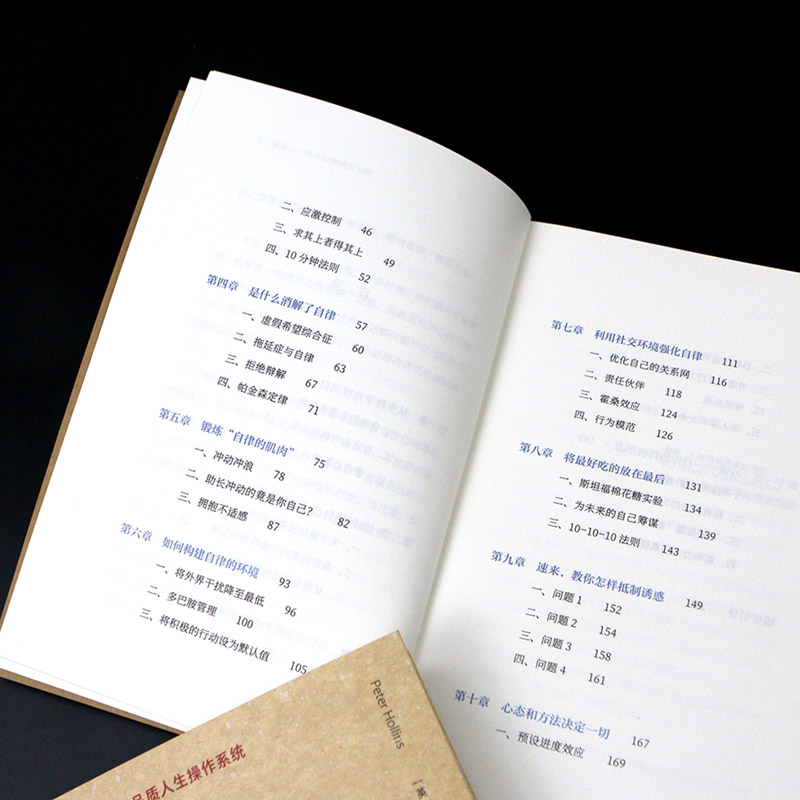 二、应激控制 46
三、求其上者得其上 49
四、10分钟法则 52
第四章 是什么消解了自律 57
一、虚假希望综合征 60
二、拖延症与自律 63
三、拒绝辩解 67
四、帕金森定律 71
第五章 锻炼“自律的肌肉” 75
一、冲动冲浪 78
二、助长冲动的竟是你自己？ 82
三、拥抱不适感 87
第六章 如何构建自律的环境 93
一、将外界干扰降至最低 96
二、多巴胺管理 100
三、将积极的行动设为默认值 105
第七章 利用社交环境强化自律 111
一、优化自己的关系网 116
二、责任伙伴 118
三、霍桑效应 124
四、行为模范 126
第八章 将最好吃的放在最后 131
一、斯坦福棉花糖实验 134
二、为未来的自己筹谋 139
三、10-10-10法则 143
第九章 速来，教你怎样抵制诱惑 149
一、问题1 152
二、问题2 154
三、问题3 158
四、问题4 161
第十章 心态和方法决定一切 167
一、预设进度效应 169
Peter Hollins
[英
品质人生操作系统